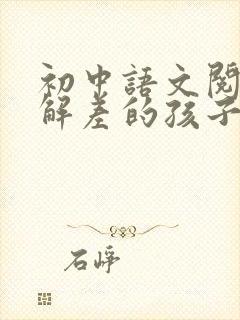 初中語文閱
解差的孩子
石崢